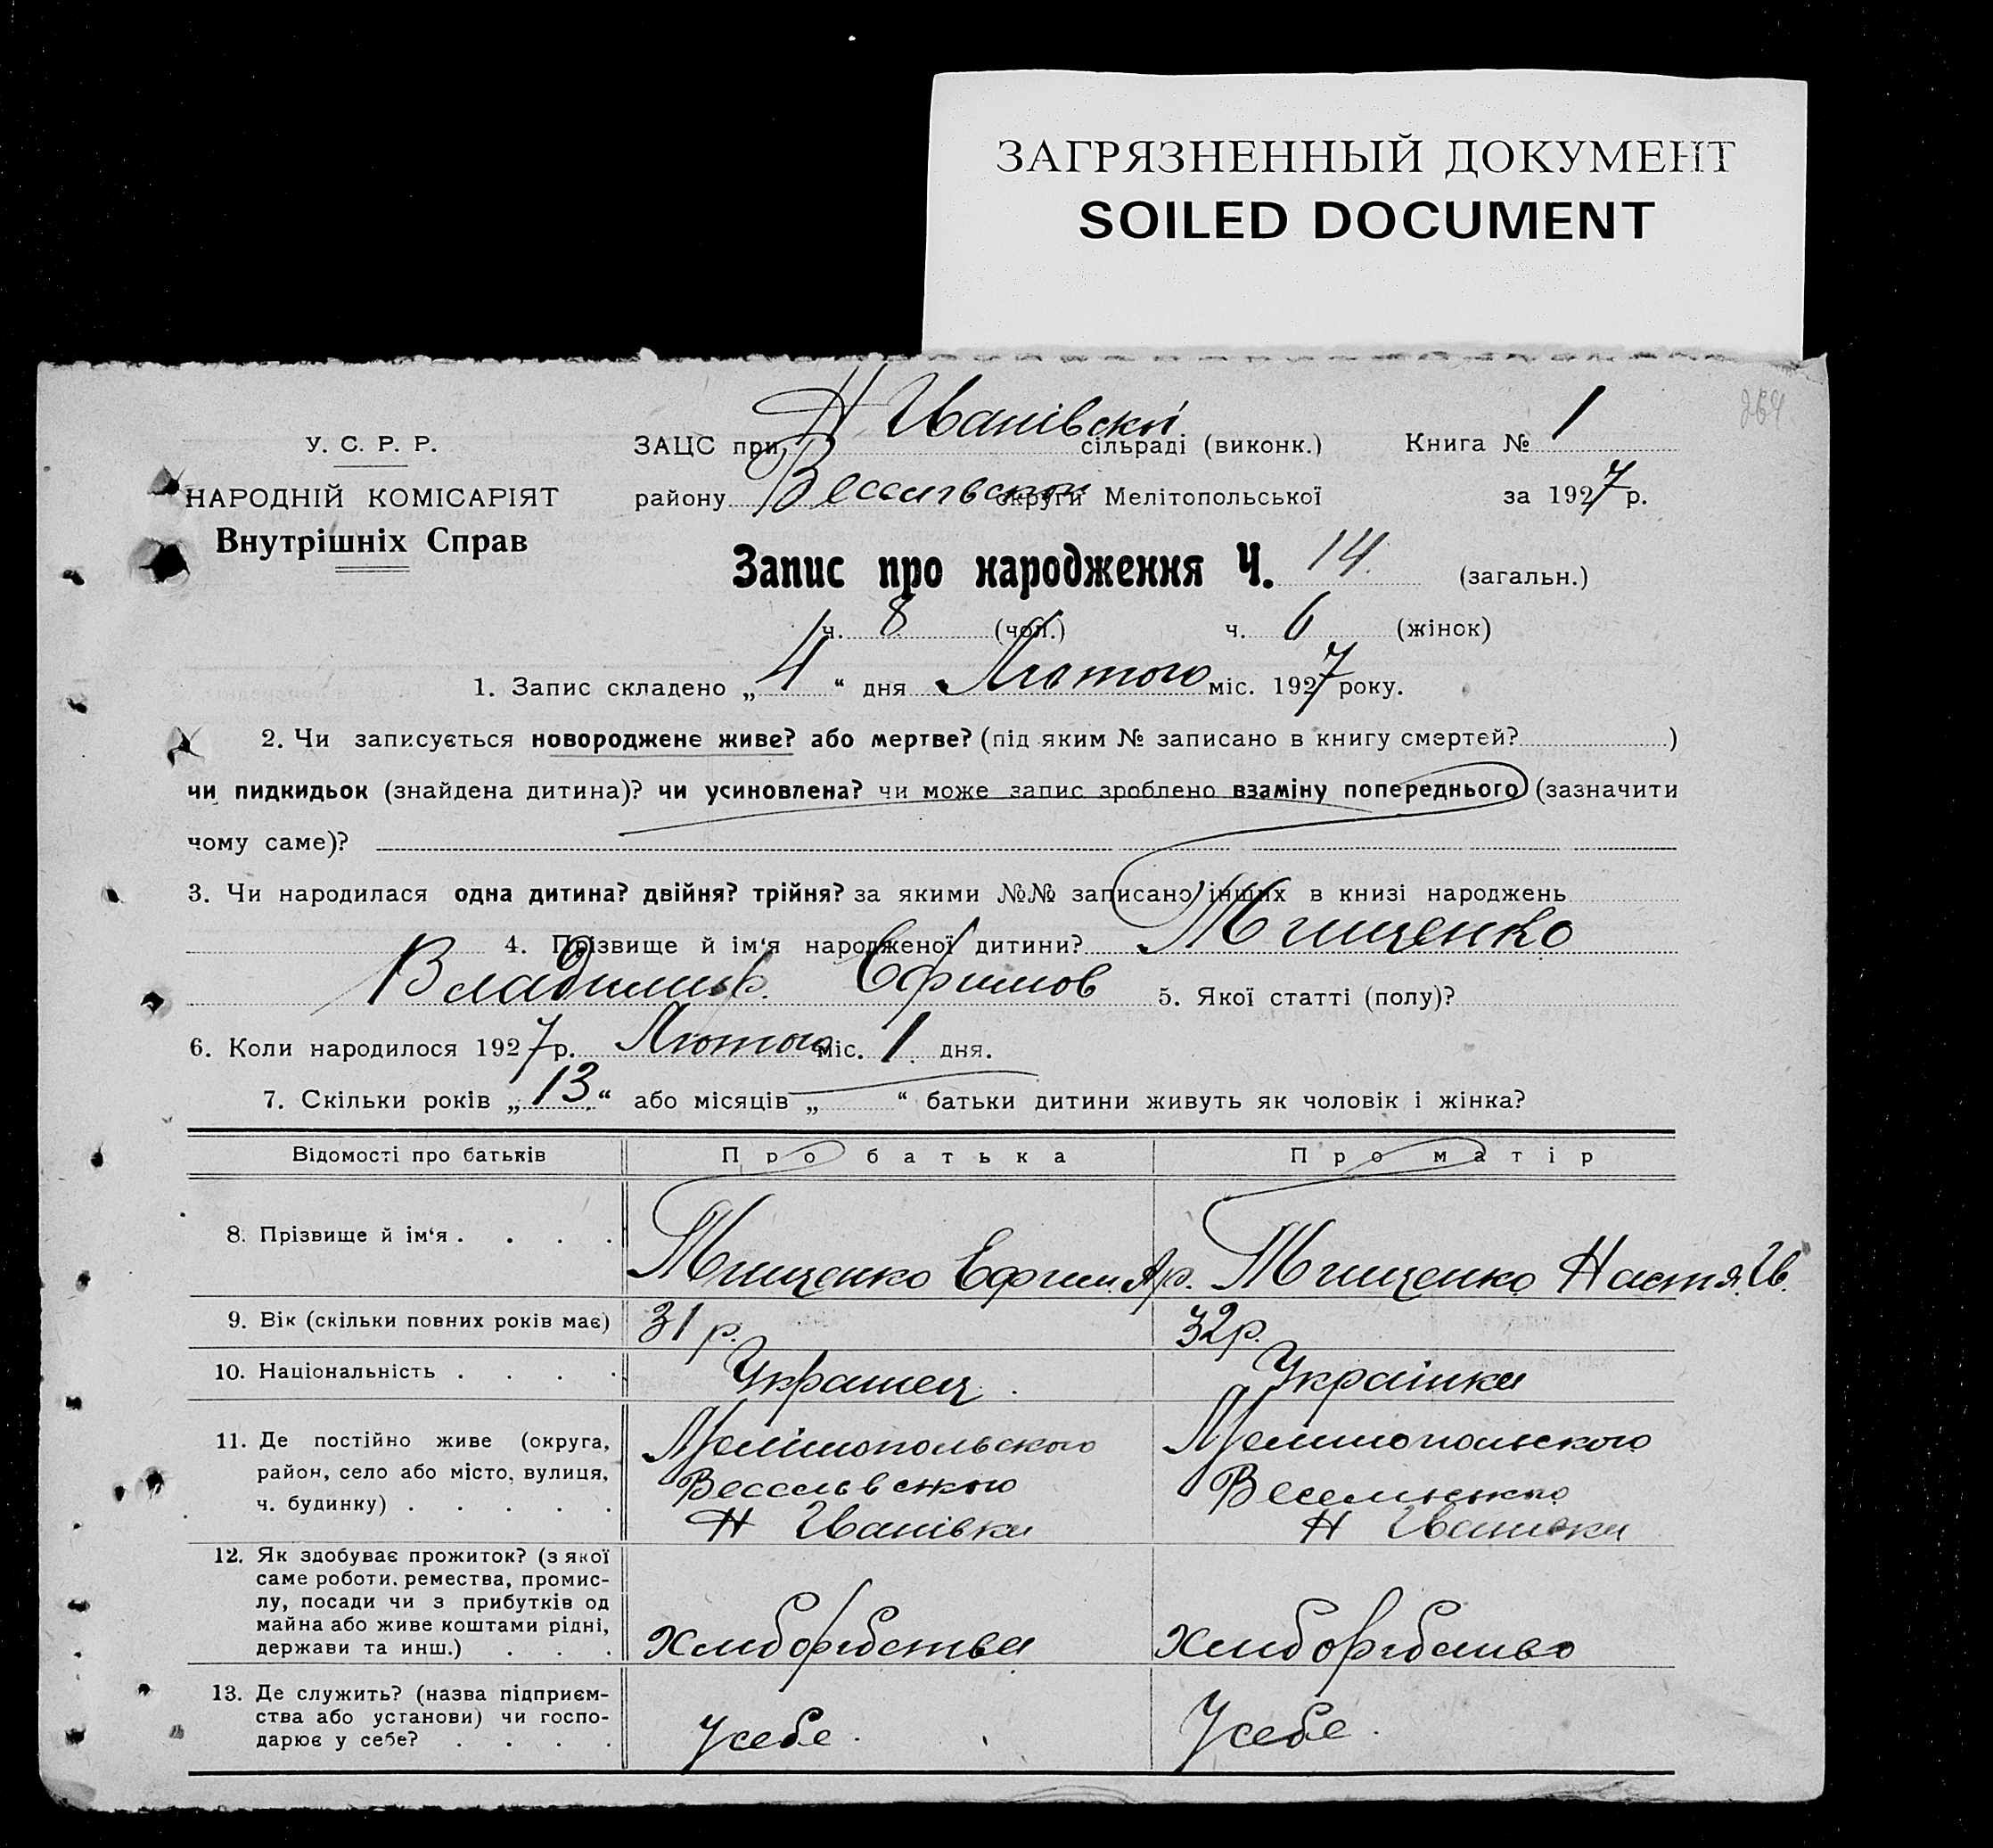 ЗАГРЯЗНЕННЫЙ ДОКУМЕНТ
SOILED DOCUMENT
264
У. С. Р. Р.
НАРОДНІЙ КОМІСАРІЯТ
Внутрішніх Справ
ЗАЦС при Н Іванівскі сільраді (виконк.) Книга № 1
району округи Мелітопольської за 1927 р.
Запис про народження Ч. 14 (загальн.)
ч. 8 (чол.) ч. 6 (жінок)
1. Запис складено „ 4 “ дня Лютого міс. 1927 року.
2. Чи записується новороджене живе? або мертве? (під яким № записано в книгу смертей? )
чи пидкидьок (знайдена дитина)? чи усиновлена? чи може запис зроблено взаміну попереднього (зазначити
чому саме)?
3. Чи народилася одна дитина? двійня? трійня? за якими №№ записано інших в книзі народжень
4. Прізвище й ім‘я народженої дитини? Тищенко
Владимир Ефимов 5. Якої статті (полу)?
6. Коли народилося 1927 р. Лютого міс. 1 дня.
7. Скільки років „ 13 “ або місяців „ “ батьки дитини живуть як чоловік і жінка?
Відомості про батьків Про батька Про матір
8. Прізвище й ім‘я . . . . Тищенко Ефим Ар. Тищенко Настя Ив.
9. Вік (скільки повних років має) 31 р. 32 р.
10. Національність . . . . Українец. Українка
11. Де постійно живе (округа, Мелітопольского Мелитопольского
район, село або місто, вулиця, Веселівського Веселинського
ч. будинку) . . . . . Н Іванівка Н Іванивка
12. Як здобуває прожиток? (з якої
саме роботи, ремества, промис-
лу, посади чи з прибутків од
майна або живе коштами рідні,
держави та инш.) . . . хлиборобства хлиборобство
13. Де служить? (назва підприєм-
ства або установи) чи госпо-
дарює у себе? . . . . У себе. У себе.